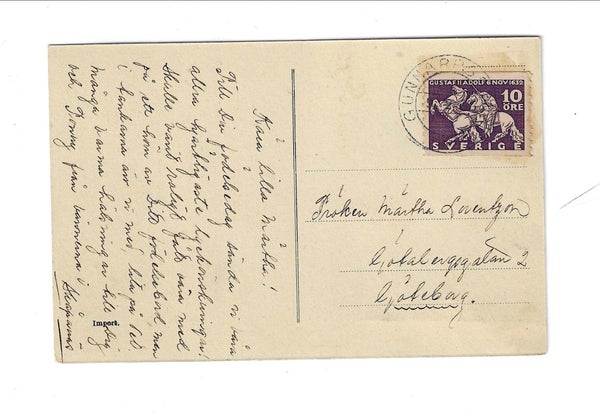 Kära lilla Märtha!
Till Din födelsedag sända vi våra
allra hjärtligaste lyckönskningar.
Skulle varit roligt få vara med
på ett horn av Ditt födelsebord, men
i tankarna äro vi med
många varma hälsningar till Dig
och Conny från vännerna i
Import.
GUNNAR
GUSTAF II ADOLF 6 NOV 1632
10
ÖRE
SVERIGE
Fröken Märtha Lorentzon
Götabergsgatan 2
Göteborg.